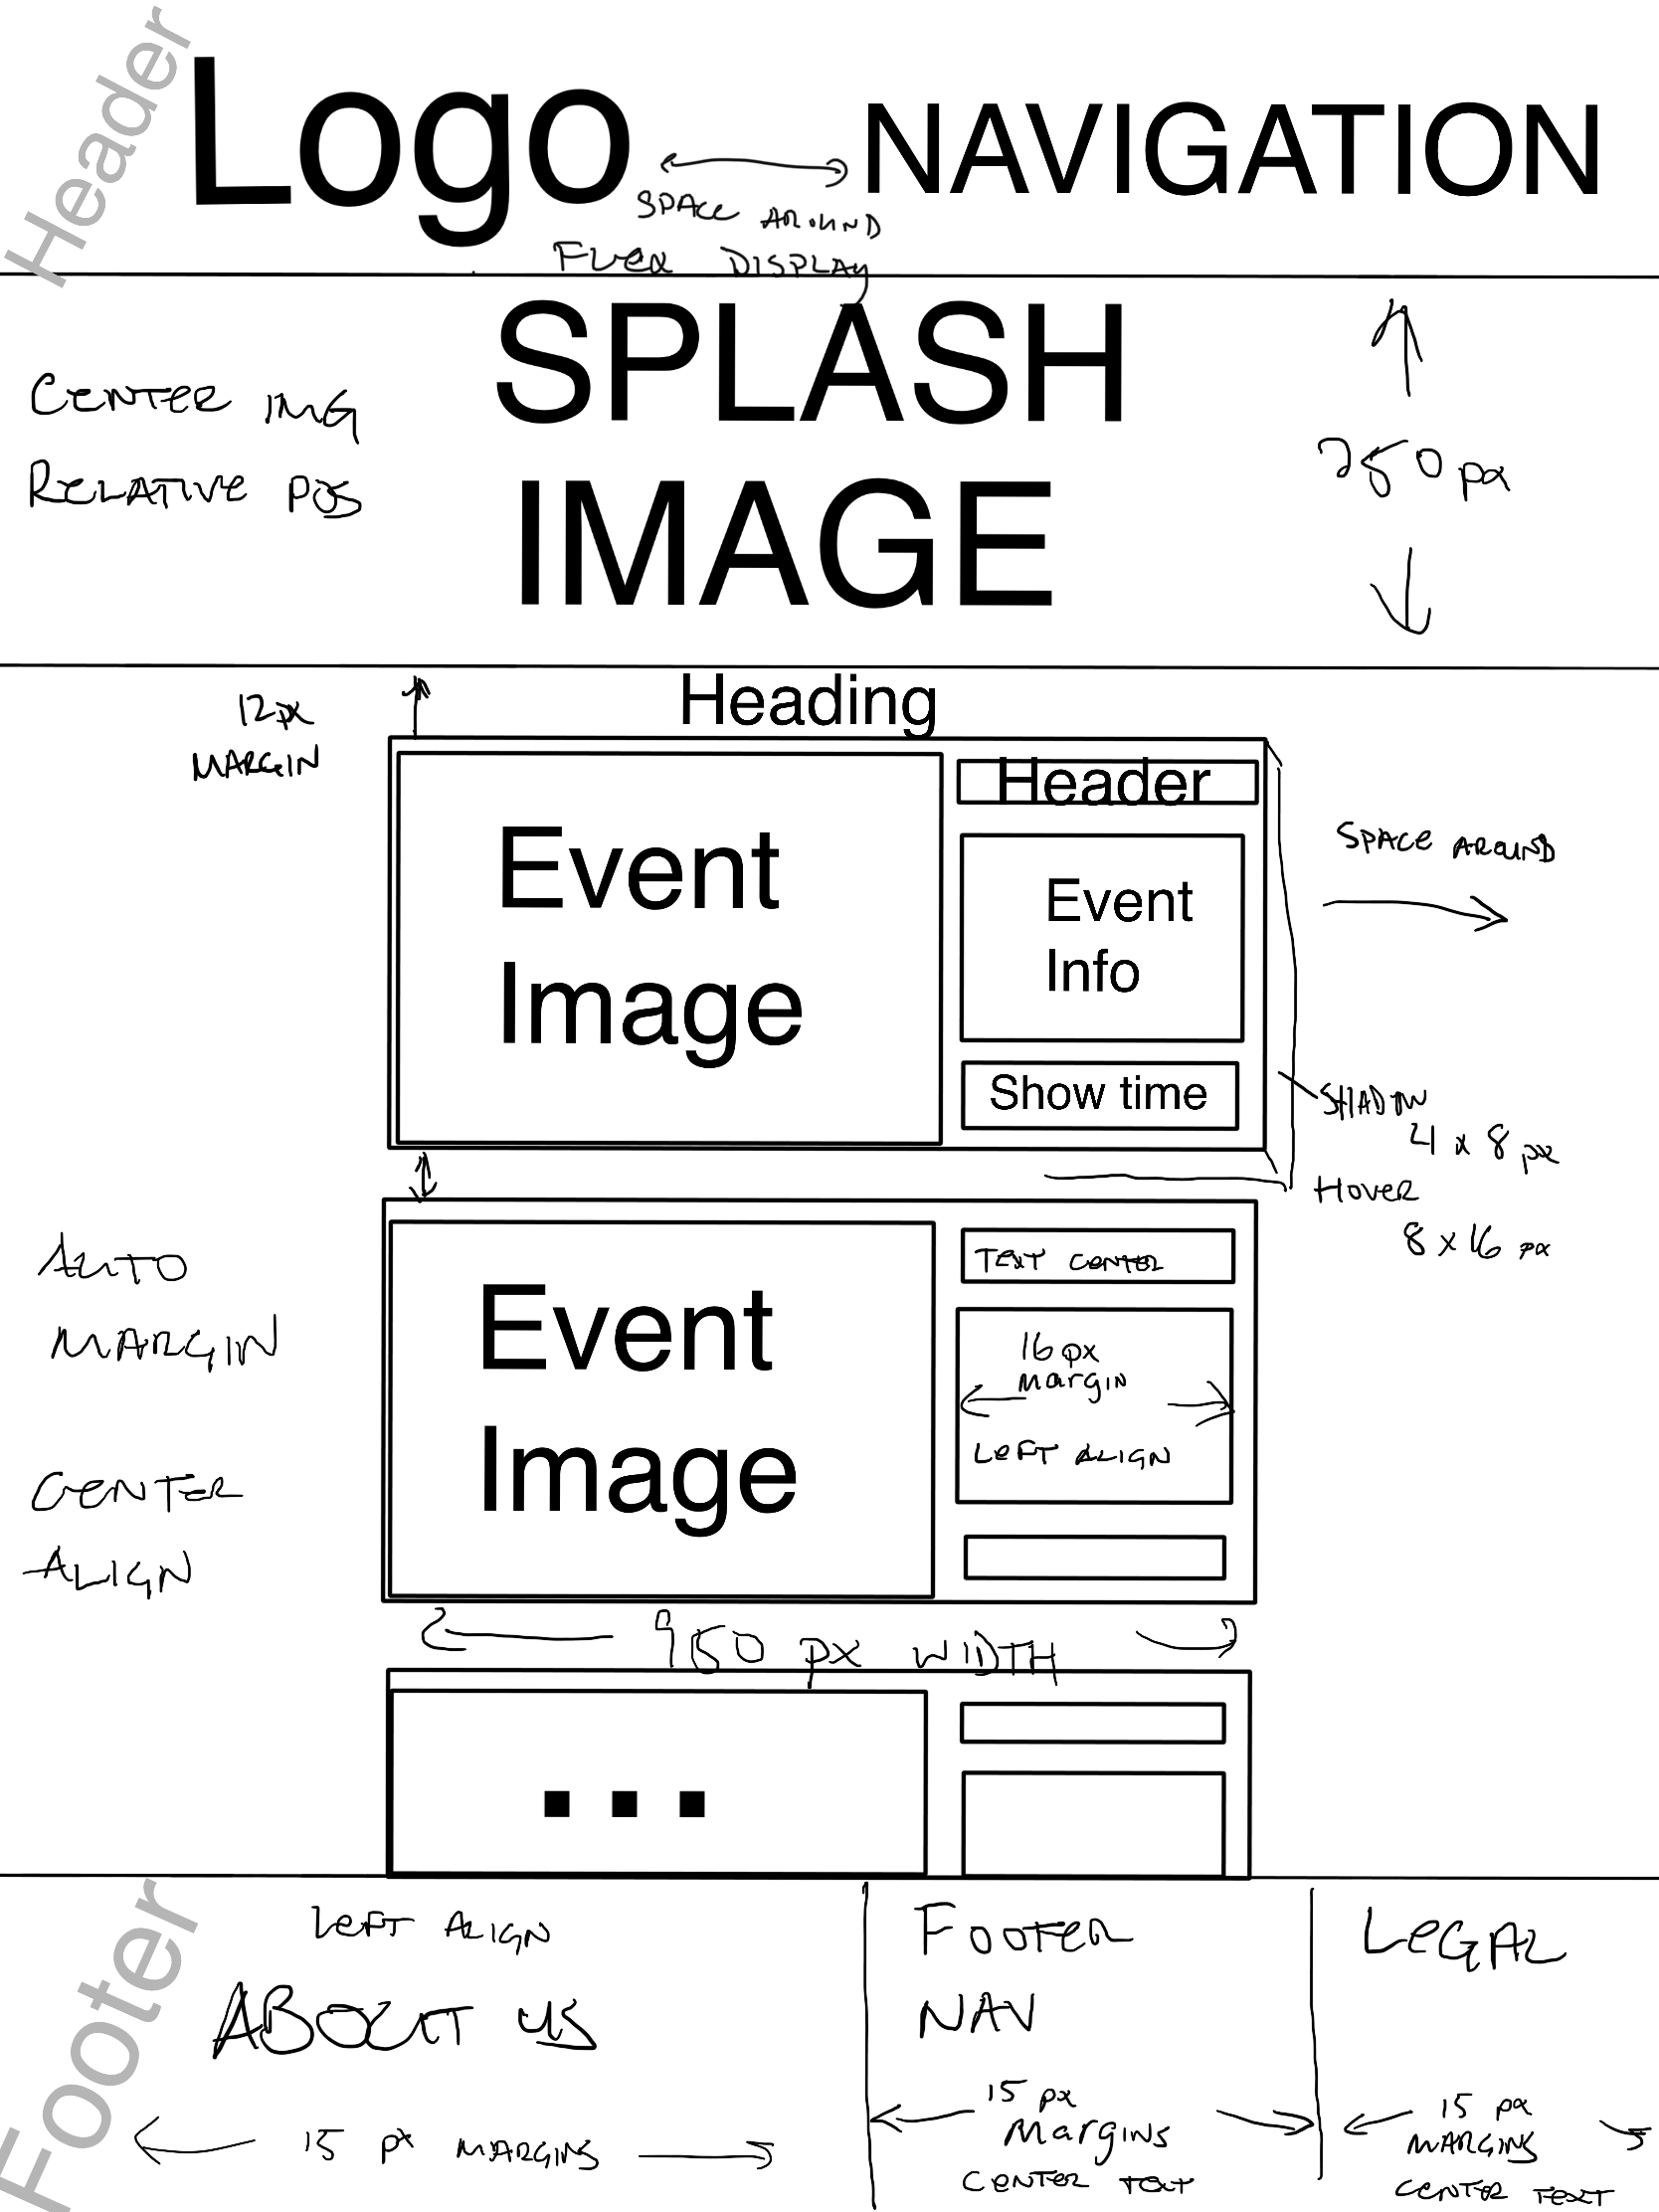 Header
Logo
NAVIGATION
SPACE AROUND
FLEX DISPLAY
SPLASH
IMAGE
CENTER IMG
RELATIVE POS
350 px
Heading
12px
MARGIN
Event
Image
Header
Event
Info
Show time
SPACE AROUND
SHADOW
4 x 8 px
HOVER
8 x 16 px
AUTO
MARGIN
CENTER
ALIGN
Event
Image
TEXT CENTER
16 px
Margin
LEFT ALIGN
950 px WIDTH
...
Footer
LEFT ALIGN
ABOUT US
15 px MARGINS
FOOTER
NAV
15 px
MargiNS
CENTER TEXT
LEGAL
15 px
MARGINS
CENTER TEXT